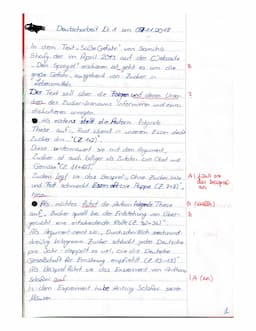 Deutscharbeit Nr.1 am 07.11.2018
In dem Text „Süße Gefahr" von Samiha
Shafy, der im April 2013 auf der Webseite
„Der Spiegel" erschienen ist, geht es um die
große Gefahr, ausgehend von Zucker in
Lebensmitteln.
Der Text soll über die Folgen und deren Ursa-
chen des Zucker-konsums informieren und einen
diskutieren.
Als erstens stellt die Autorin folgende
These auf: „Fast überall in unserem Essen steckt
Zucker drin" (Z.12).
Diese untermauert sie mit dem Argument,
Zucker ist auch billiger als Zutaten wie Obst und
Gemüse" (Z.
Zudem legt sie das Beispiel, Ohne Zucker, Salz
und Fett schmeckt Essen oft wie Pappe (Z.
Als nächstes führt die Autorin folgende These
auf, Zucker spielt bei der Entstehung von Über-
gewicht eine entscheidende Rolle (Z.
Als Argument nennt sie, Durchschnittlich
dreißig Kilogramm Zucker schluckt jeder Deutsche
pro Jahr - doppelt so viel, wie die Deutsche
Gesellschaft für Ernährung empfiehlt (Z.
Als Beispiel führt sie das Experiment von Anthony
Sclafani an.
In dem Experiment habe Antony Sclafani seinen
R
A
das Beispiel
an
R
A (an)
1